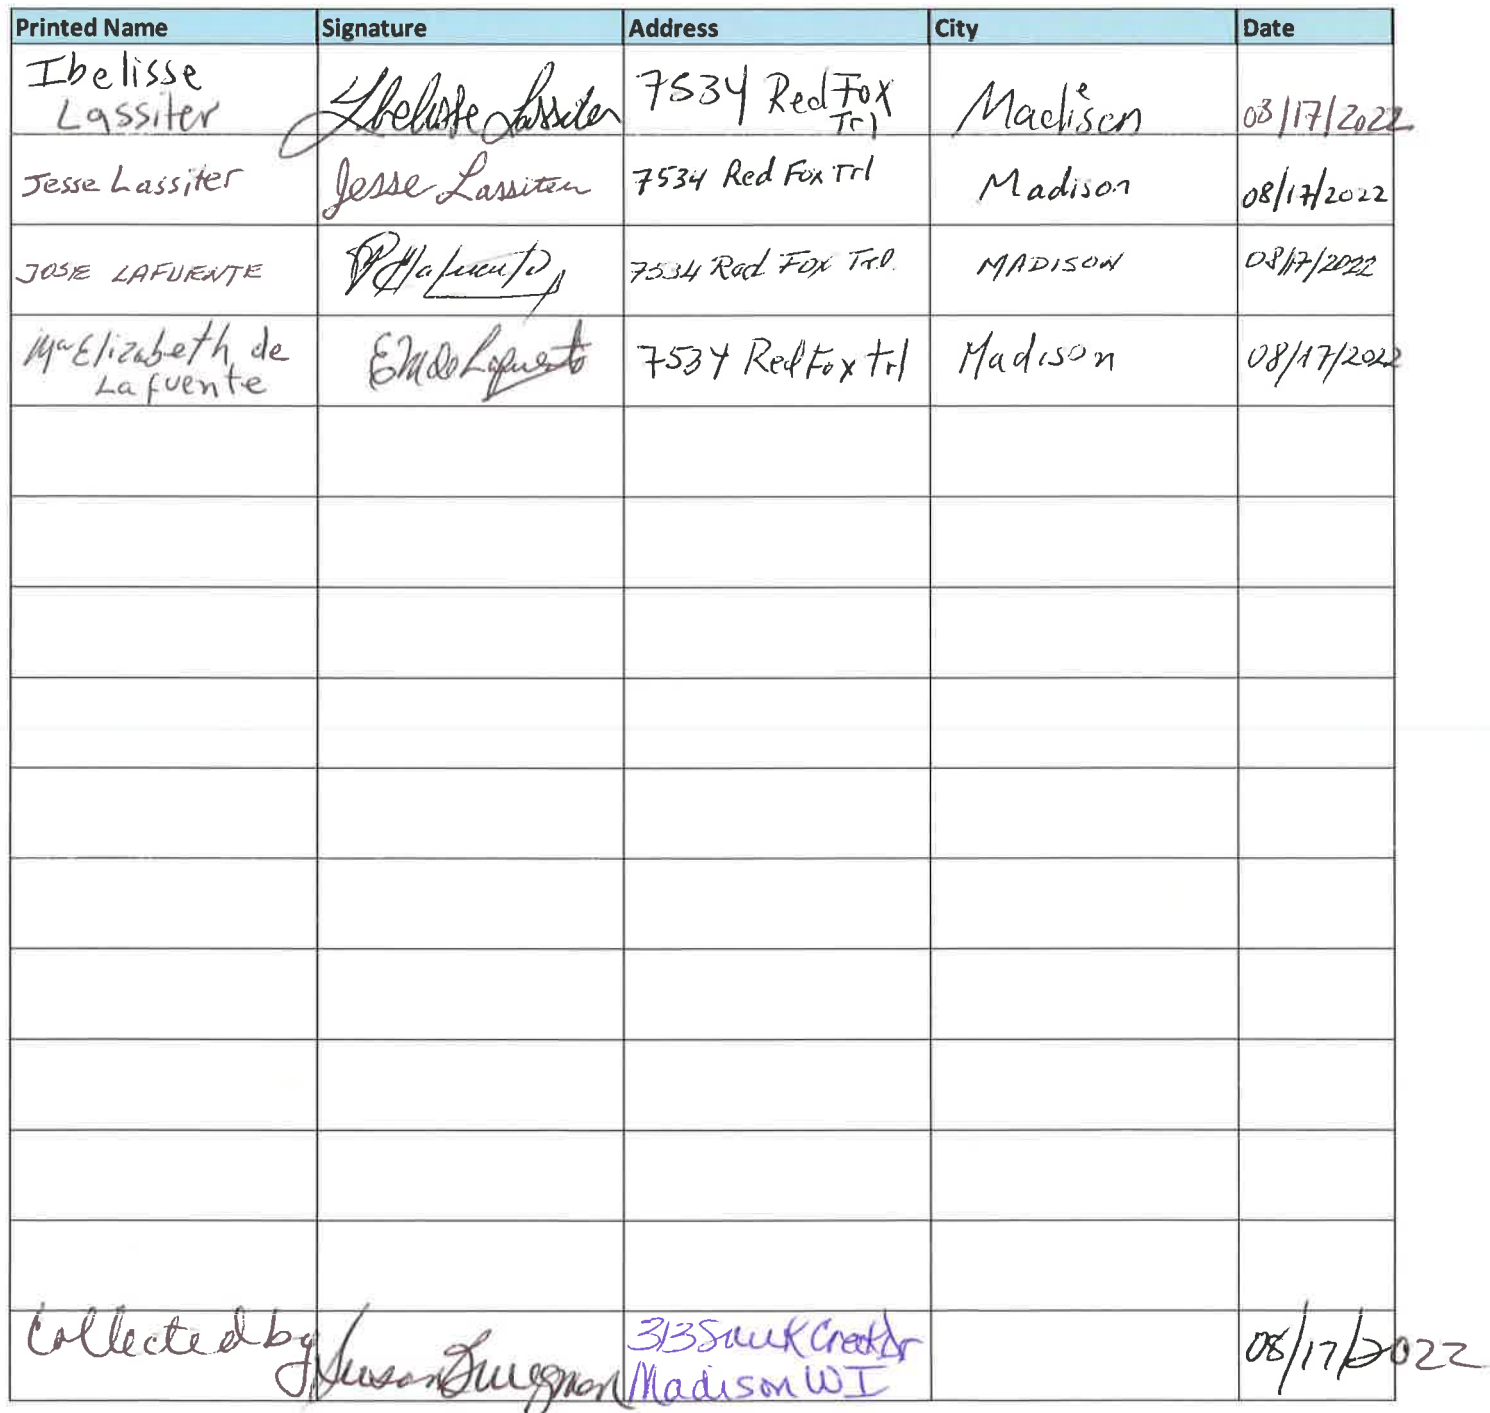 Printed Name Signature Address City Date
Ibelisse
Lassiter
Ibelisse Lassiter
7534 Red Fox
Trl
Madison
08/17/2022
Jesse Lassiter Jesse Lassiter 7534 Red Fox Trl Madison 08/17/2022
JOSE LAFUENTE Lafuente 7534 Red Fox Trl. MADISON 08/17/2022
Ma Elizabeth de
Lafuente
EM de Lafuente
7534 Red Fox trl Madison 08/17/2022
Collected by
Susan
313 Sauk Creek Dr
Madison WI
08/17/2022